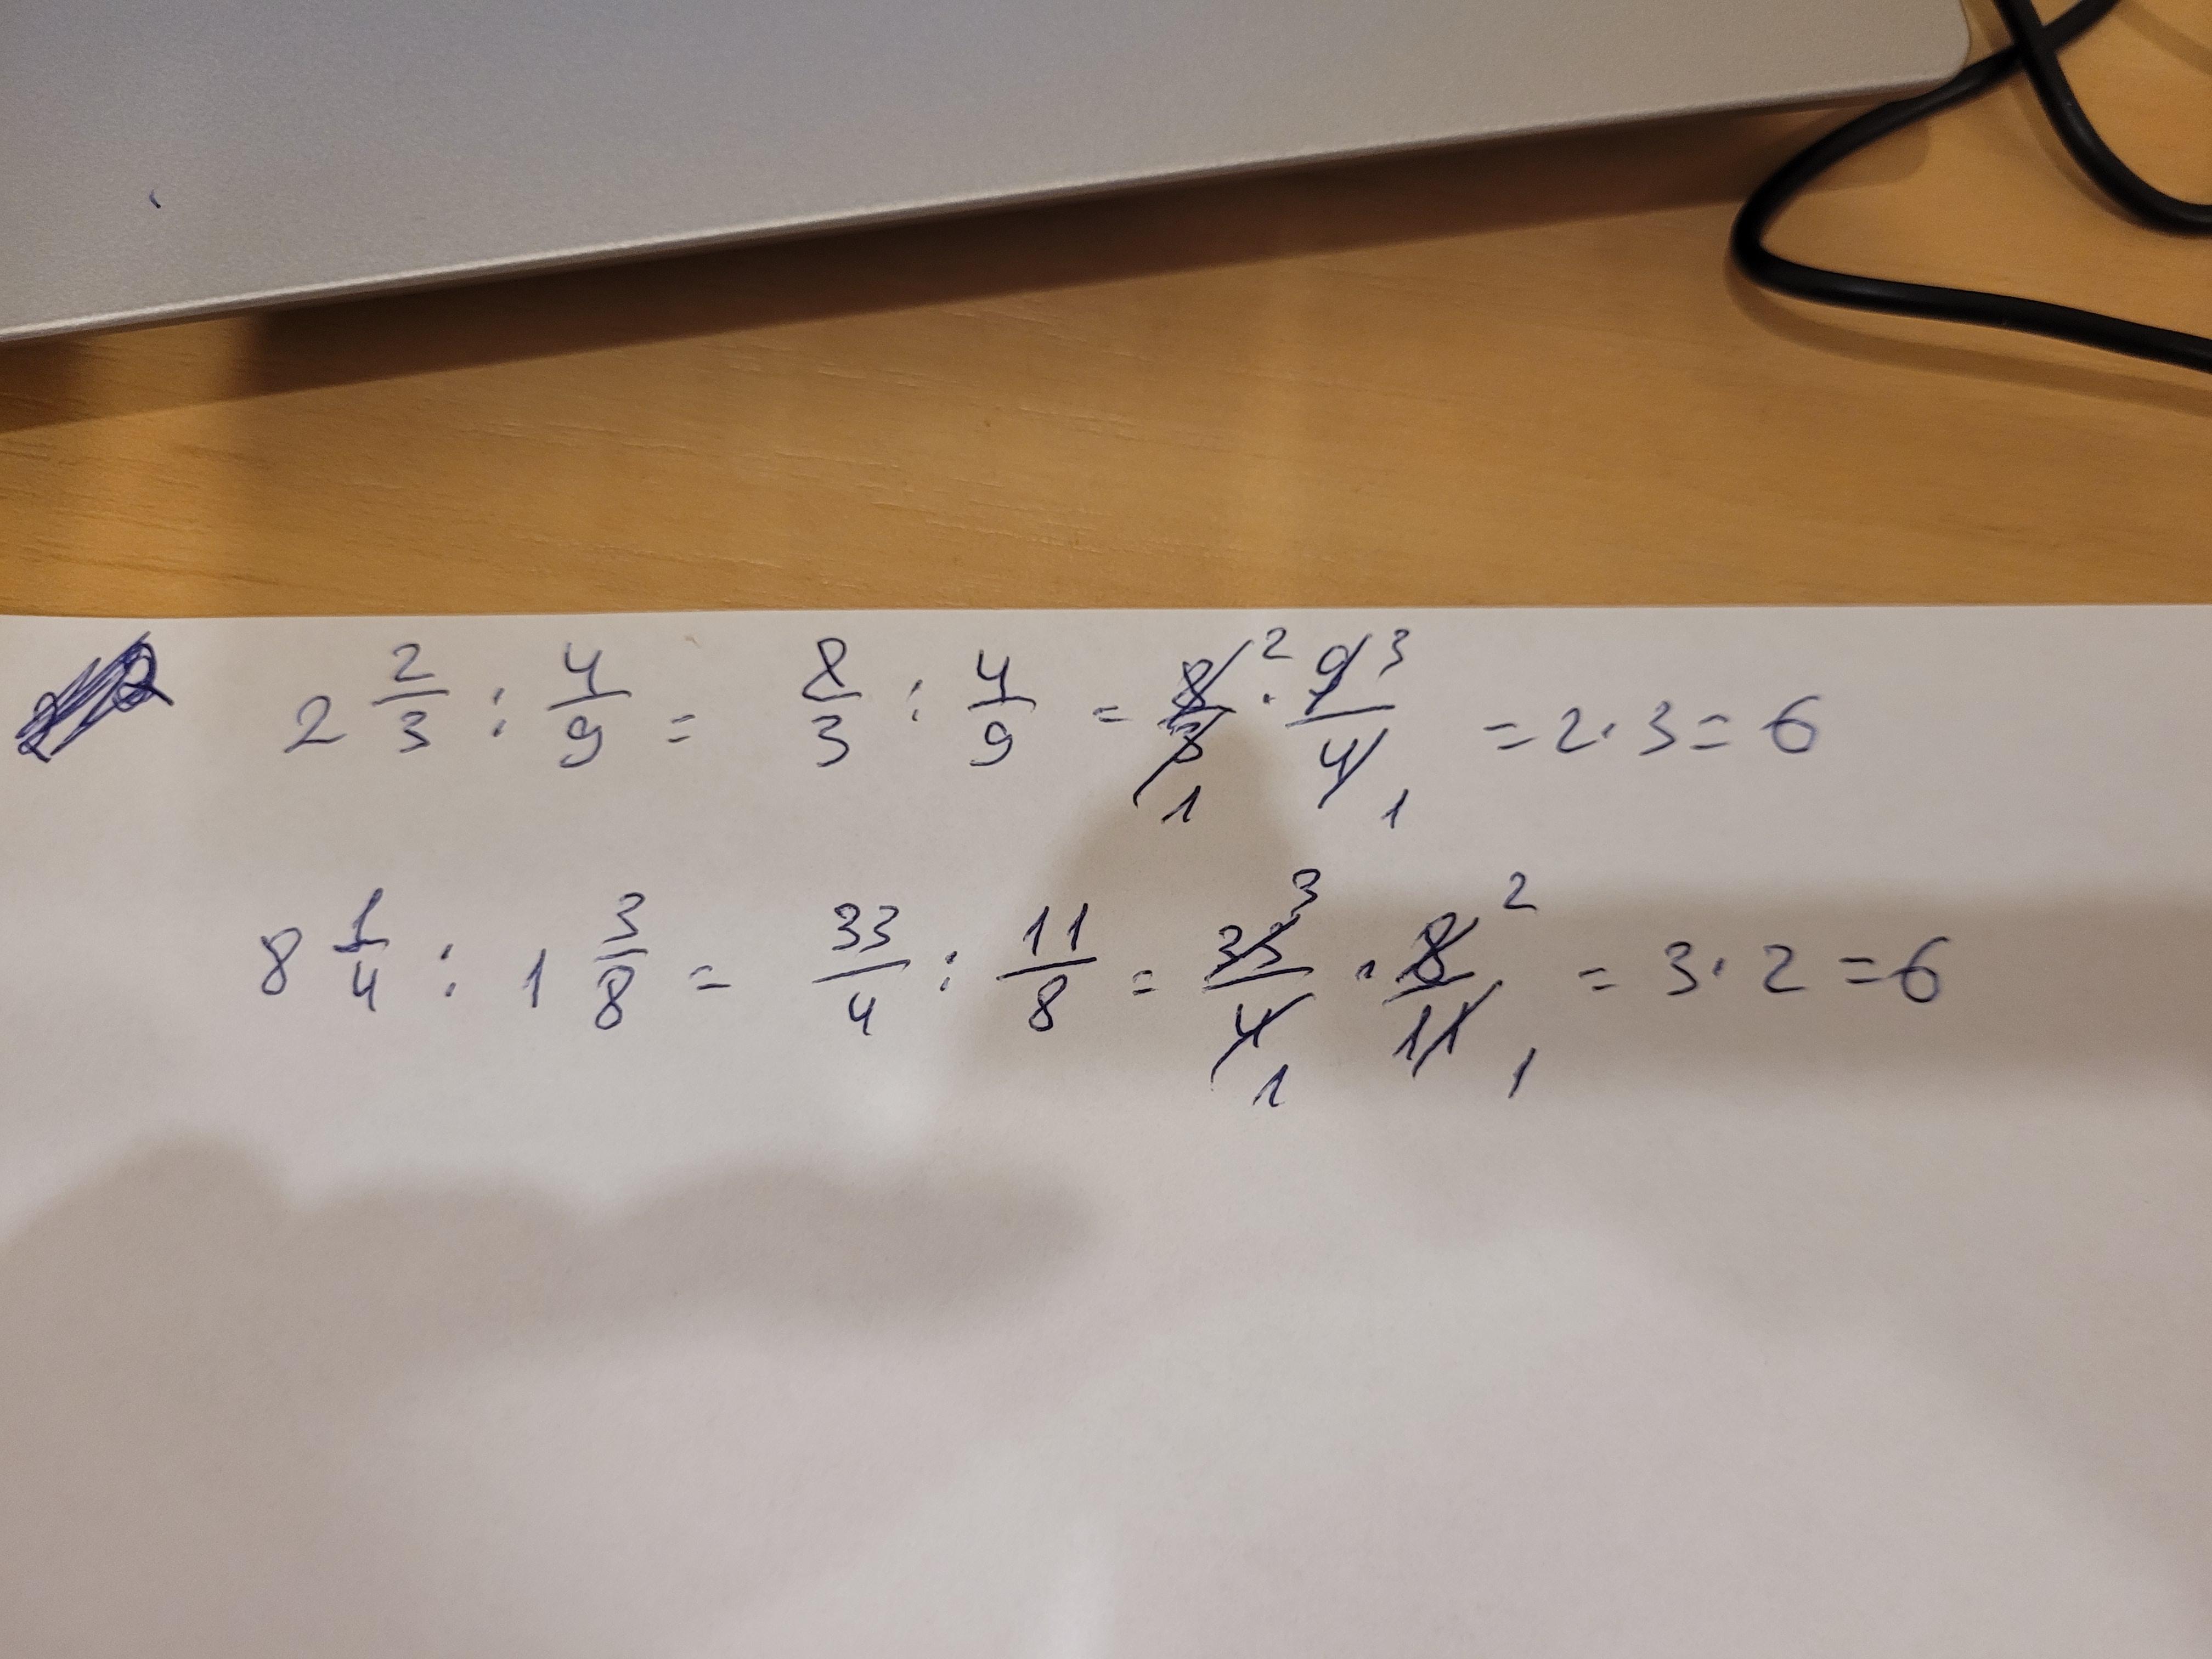 2 2/3 : 4/9 = 8/3 : 4/9 = 8/3 2 1 · 9/4 3 1 = 2 · 3 = 6
8 1/4 : 1 3/8 = 33/4 : 11/8 = 33/4 3 1 · 8/11 2 1 = 3 · 2 = 6